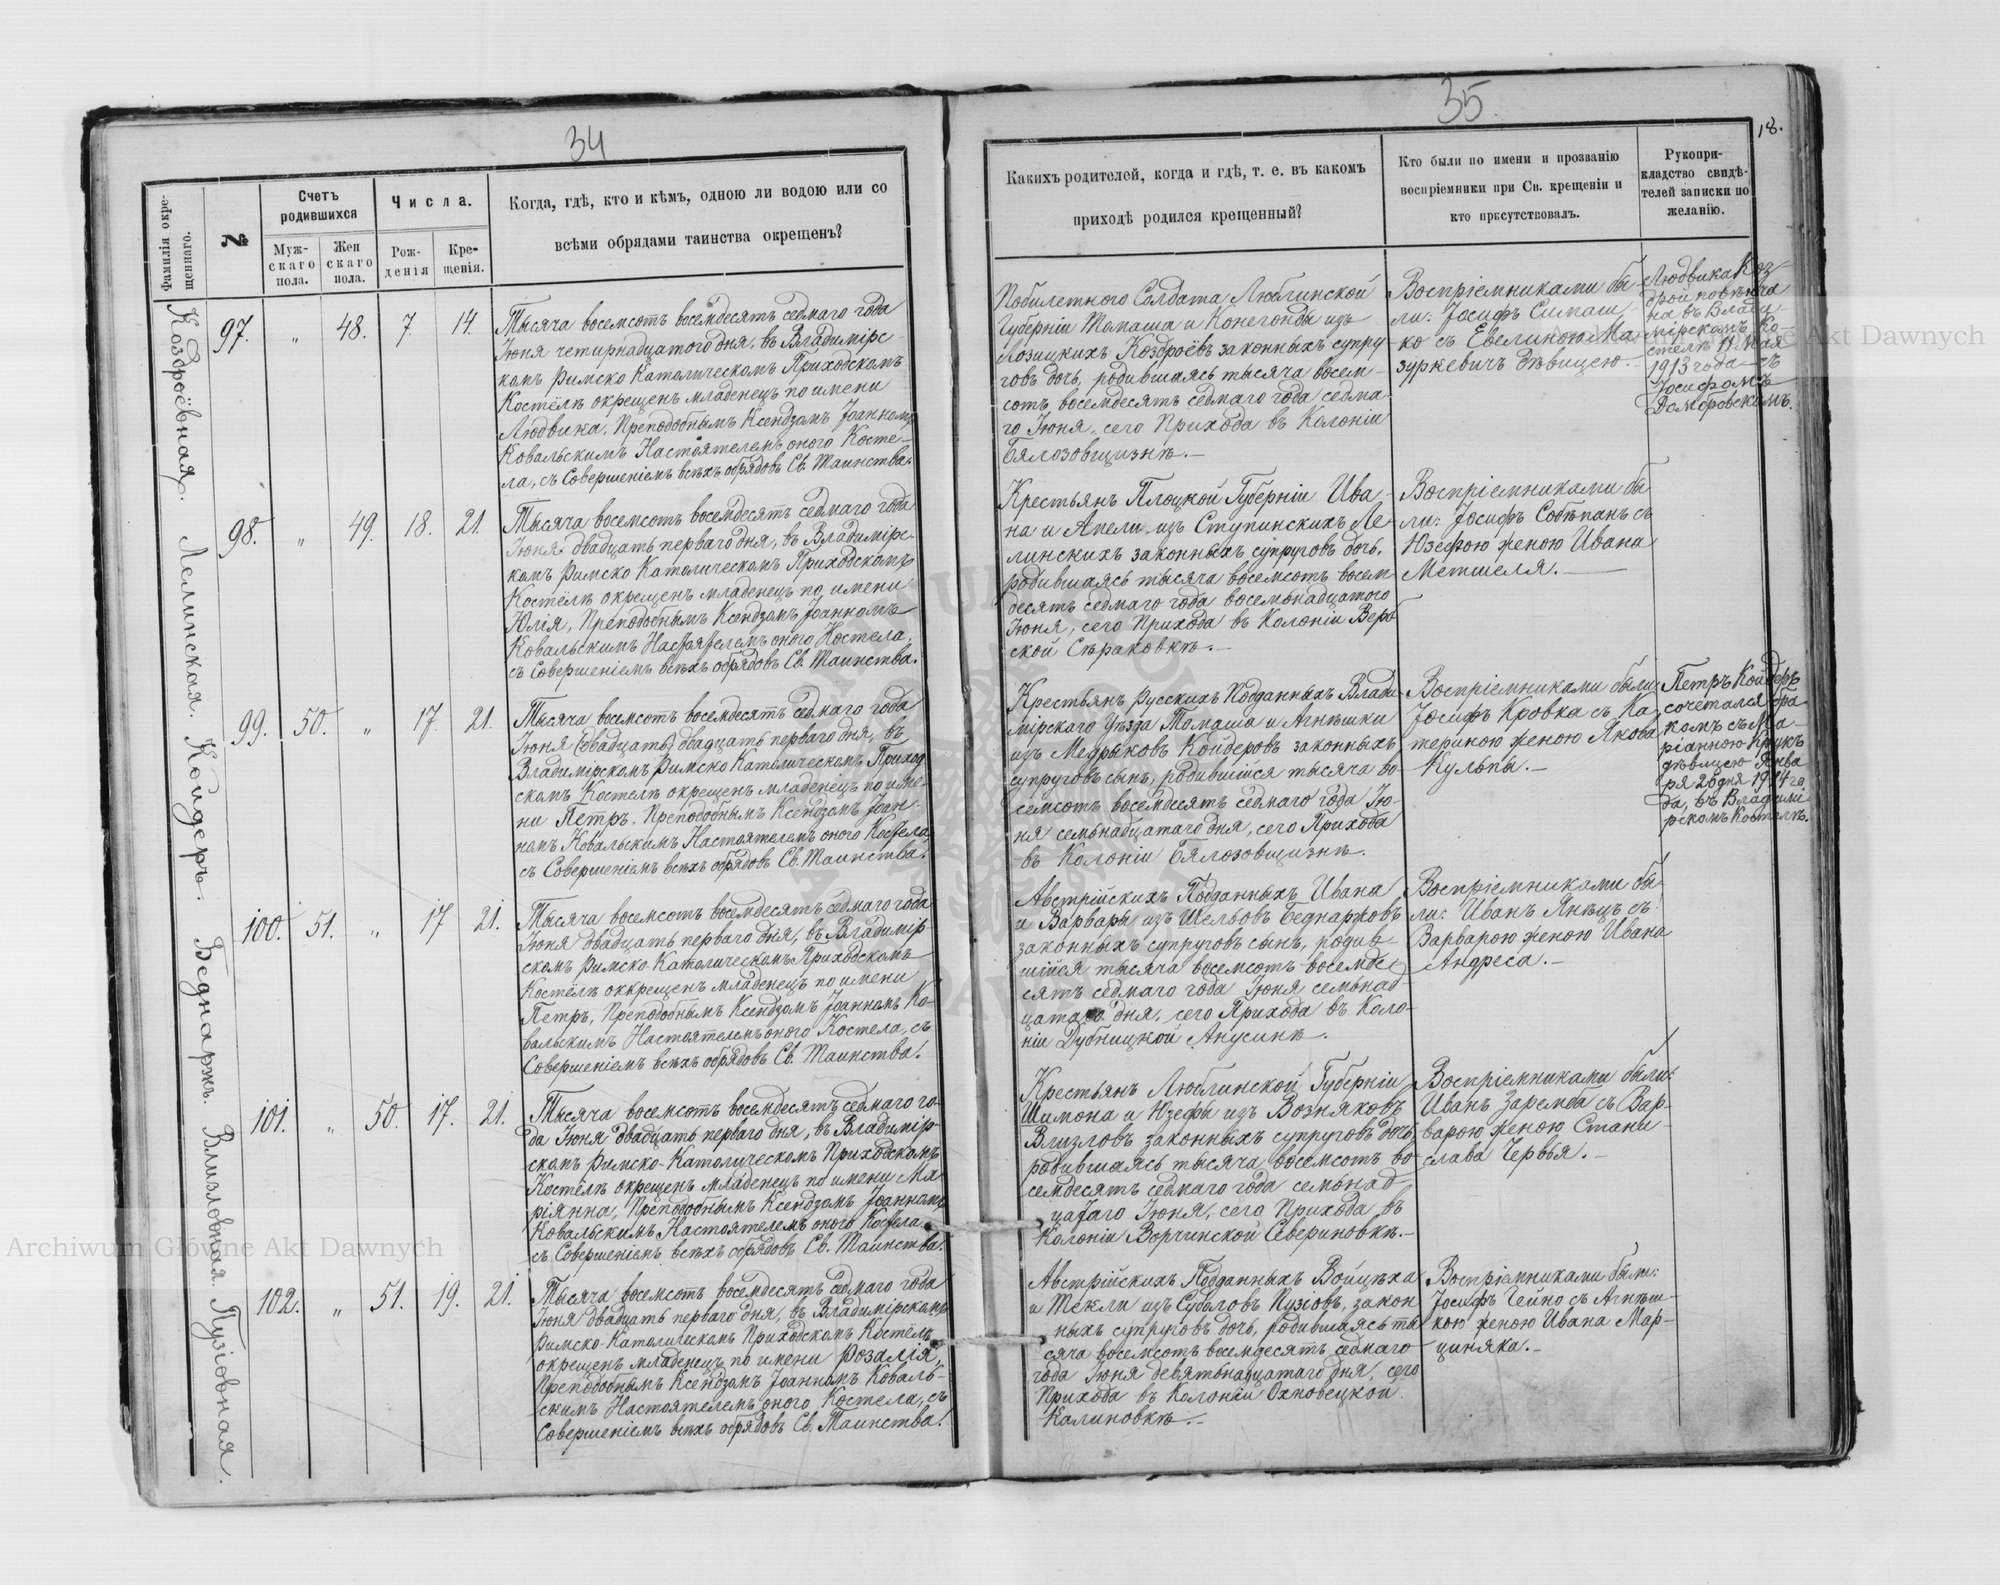 34
Фамилія окре-
щеннаго.
№
Счетъ
родившихся
Муж-
скаго
пола.
Жен
скаго
пола.
Числа.
Рож-
денія
Кре-
щенія.
Когда, гдѣ, кто и кѣмъ, одною ли водою или со
всѣми обрядами таинства окрещенъ?
Коздроёвная.
97. " 48. 7. 14.
Тысяча восемсотъ восемдесятъ седмаго года
Іюня четырнадцатого дня, въ Владимірс-
комъ Римско Католическомъ Приходскомъ
Костёлѣ окрещенъ младенецъ по имени
Людвика, Преподобнымъ Ксендзомъ Іоанномъ
Ковальскимъ Настоятелемъ оного Косте-
ла, съ Совершеніемъ всѣхъ обрядовъ Св. Таинства.
Лелинская.
98. " 49. 18. 21.
Тысяча восемсотъ восемдесятъ седмаго года
Іюня двадцать перваго дня, въ Владимірс-
комъ Римско Католическомъ Приходскомъ
Костёлѣ окрещенъ младенецъ по имени
Юлія, Преподобнымъ Ксендзомъ Іоанномъ
Ковальскимъ Настоятелемъ оного Костела,
съ Совершеніемъ всѣхъ обрядовъ Св. Таинства.
Койдеръ.
99. 50. " 17. 21.
Тысяча восемсотъ восемдесятъ седмаго года
Іюня (двадцать) двадцать перваго дня, въ
Владимірскомъ Римско Католическомъ Приход
скомъ Костелѣ окрещенъ младенецъ по име-
ни Петръ, Преподобнымъ Ксендзомъ Іоан-
номъ Ковальскимъ Настоятелемъ оного Костела,
съ Совершеніемъ всѣхъ обрядовъ Св. Таинства.
Беднаржъ.
100. 51. " 17 21.
Тысяча восемсотъ восемдесятъ седмаго года
Іюня двадцать перваго дня, въ Владимір
скомъ Римско Католическомъ Приходскомъ
Костёлѣ оккрещенъ младенецъ по имени
Петръ, Преподобнымъ Ксендзомъ Іоанномъ Ко-
вальскимъ Настоятелемъ оного Костела, съ
Совершеніемъ всѣхъ обрядовъ Св. Таинства.
Влизловная.
101. " 50. 17. 21.
Тысяча восемсотъ восемдесятъ седмаго го-
да Іюня двадцать перваго дня, въ Владимір-
скомъ Римско-Католическомъ Приходскомъ
Костёлѣ окрещенъ младенецъ по имени Ма
ріянна, Преподобнымъ Ксендзомъ Іоанномъ
Ковальскимъ Настоятелемъ оного Костела
съ Совершеніемъ всѣхъ обрядовъ Св. Таинства.
Пузіовная.
102. " 51. 19. 21.
Тысяча восемсотъ восемдесятъ седмаго года
Іюня двадцать перваго дня, въ Владимірскомъ
Римско-Католическомъ Приходскомъ Костёлѣ
окрещенъ младенецъ по имени Розалія,
Преподобнымъ Ксендзомъ Іоанномъ Коваль-
скимъ Настоятелемъ оного Костела, съ
Совершеніемъ всѣхъ обрядовъ Св. Таинства.
35
18.
Какихъ родителей, когда и гдѣ, т. е. въ какомъ
приходѣ родился крещенный?
Кто были по имени и прозванію
воспріемники при Св. крещеніи и
кто присутствовалъ.
Рукопри-
кладство свидѣ-
телей записки по
желанію.
Побилетного Солдата Люблинской
Губерніи Томаша и Конегонды изъ
Лозицкихъ Коздроёвъ законныхъ супру
говъ дочь, родившаясь тысяча восем-
сотъ восемдесятъ седмаго года седма-
го Іюня, сего Прихода въ Колоніи
Бялозовщизнѣ.-
Воспріемниками бы
ли: Іосифъ Симаш
ко съ Евелиною Ма-
зуркевичъ дѣвицею.-
Людвика Коз
дрой повѣнча
на въ Влади-
мірскомъ Ко
стелѣ 11 Мая
1913 года съ
Іосифомъ
Домбровскимъ.
Крестьянъ Плоцкой Губерніи Ива-
на и Апели изъ Ступинскихъ Ле-
линскихъ законныхъ супруговъ дочь,
родившаясь тысяча восемсотъ восем
десятъ седмаго года восемьнадцатого
Іюня, сего Прихода въ Колоніи Верб
ской Сѣраковкѣ.-
Воспріемниками бы
ли: Іосифъ Собѣпанъ съ
Юзефою женою Ивана
Метшеля.-
Крестьянъ Русскихъ Подданныхъ Влади-
мірского Уѣзда Томаша и Агнѣшки
изъ Медраковъ Койдеровъ законныхъ
супруговъ сынъ, родившійся тысяча во-
семсотъ восемдесятъ седмаго года Ію-
ня семьнадцатаго дня, сего Прихода
въ Колоніи Бялозовщизнѣ.
Воспріемниками были
Іосифъ Кровка съ Ка
териною женою Якова
Кульпы.-
Петръ Койдеръ
сочетался бра
комъ съ Ма-
ріанною Крукъ
дѣвицею Янва
ря 26 дня 1914 го
да, въ Владимі
рскомъ Костелѣ.
Австрійскихъ Подданныхъ Ивана
и Варвары изъ Шельовъ Беднаржовъ
законныхъ супруговъ сынъ, родив-
шійся тысяча восемсотъ восемде-
сятъ седмаго года Іюня семьнад-
цатаго дня, сего Прихода въ Коло-
ніи Дубницкой Анусинѣ.
Воспріемниками бы-
ли: Иванъ Янѣцъ съ
Варварою женою Ивана
Андреса.-
Крестьянъ Люблинской Губерніи
Шимона и Юзефы изъ Возняковъ
Влизловъ законныхъ супруговъ дочь,
родившаясь тысяча восемсотъ во-
семдесятъ седмаго года семьнад
цатаго Іюня, сего Прихода въ
Колоніи Ворчинской Севериновкѣ.-
Воспріемниками были:
Иванъ Заремба съ Вар-
варою женою Стани-
слава Червья.-
Австрійскихъ Подданныхъ Войцѣха
и Теклі изъ Суболовъ Пузіовъ, закон
ныхъ супруговъ дочь, родившаясь ты
сяча восемсотъ восемдесятъ седмаго
года Іюня девятьнадцатаго дня, сего
Прихода въ Колоніи Охновецкой
Калиновкѣ.-
Воспріемниками были:
Іосифъ Чейно съ Агнѣш-
кою женою Ивана Мар-
циняка.-
Archiwum Główne Akt Dawnych
Archiwum Główne Akt Dawnych